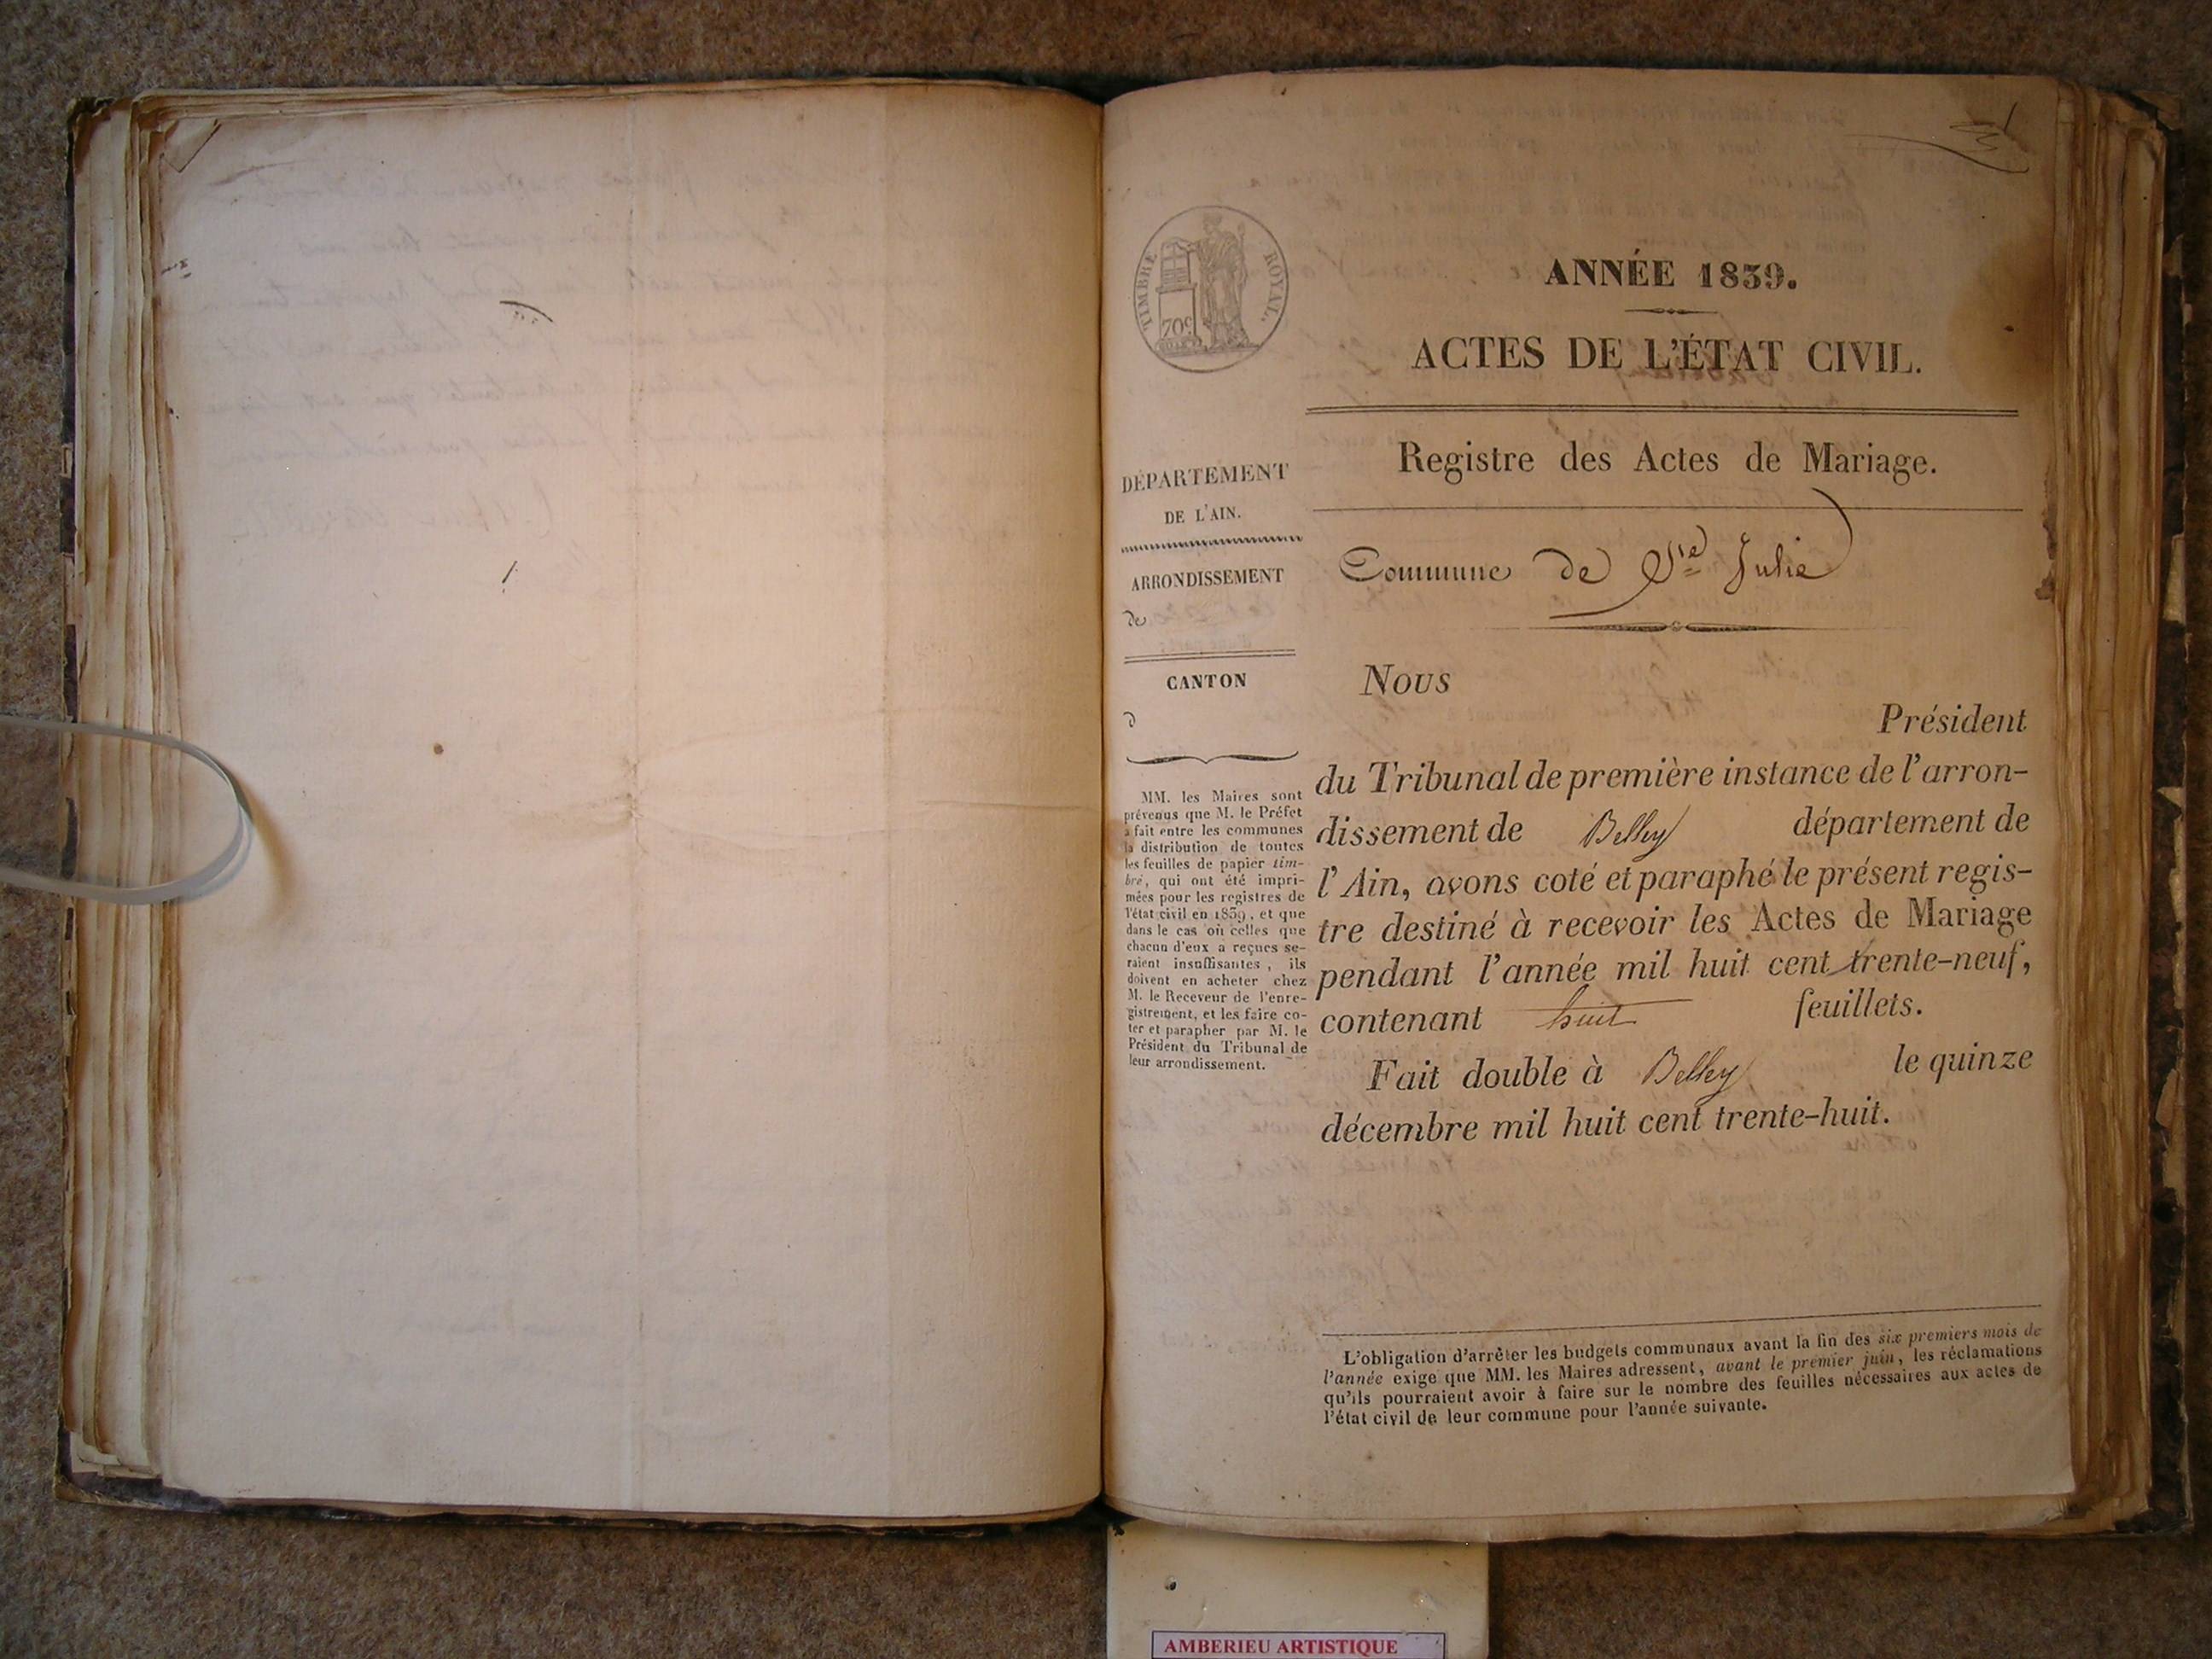 TIMBRE ROYAL.
70c
ANNÉE 1839.
ACTES DE L'ÉTAT CIVIL.
Registre des Actes de Mariage.
Commune de Ste Julie
DÉPARTEMENT
DE L'AIN.
ARRONDISSEMENT
de
CANTON
d
MM. les Maires sont
prévenus que M. le Préfet
a fait entre les communes
la distribution de toutes
les feuilles de papier tim-
bré, qui ont été impri-
mées pour les registres de
l'état civil en 1839, et que
dans le cas où celles que
chacun d'eux a reçues se-
raient insuffisantes, ils
doivent en acheter chez
M. le Receveur de l'enre-
gistrement, et les faire co-
ter et parapher par M. le
Président du Tribunal de
leur arrondissement.
Nous
Président
du Tribunal de première instance de l'arron-
dissement de Belley département de
l'Ain, avons coté et paraphé le présent regis-
tre destiné à recevoir les Actes de Mariage
pendant l'année mil huit cent trente-neuf,
contenant huit feuillets.
Fait double à Belley le quinze
décembre mil huit cent trente-huit.
L'obligation d'arrêter les budgets communaux avant la fin des six premiers mois de
l'année exige que MM. les Maires adressent, avant le premier juin, les réclamations
qu'ils pourraient avoir à faire sur le nombre des feuilles nécessaires aux actes de
l'état civil de leur commune pour l'année suivante.
AMBERIEU ARTISTIQUE